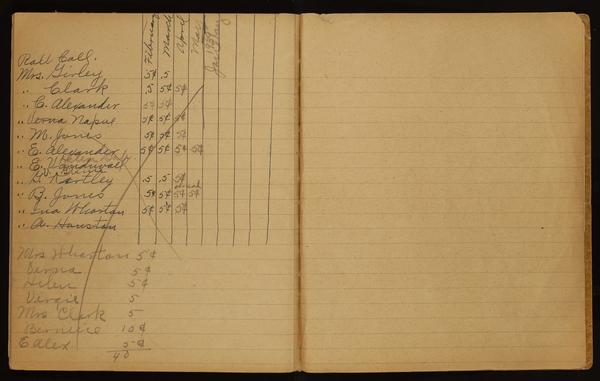 February March April May
1939
Roll Call.
Mrs. Girley 5¢ .5
" Clark .5 5¢ 5¢
" C. Alexander 5¢ 5¢
" Verna Napue 5¢ 5¢ 5¢
" M. Jones 5¢ 5¢ 5¢
" E. Alexander 5¢ 5¢ 5¢ 5¢
" E.
" H. Hartley .5 .5 5¢
" B. Jones 5¢ 5¢ 5¢ 5¢
" Ina Wharton 5¢ 5¢ 5¢
" A. Houston
Mrs Wharton 5¢
Verna 5¢
Helen 5¢
Virgie 5
Mrs Clark 5
Berniece 10¢
E Alex 5¢
40